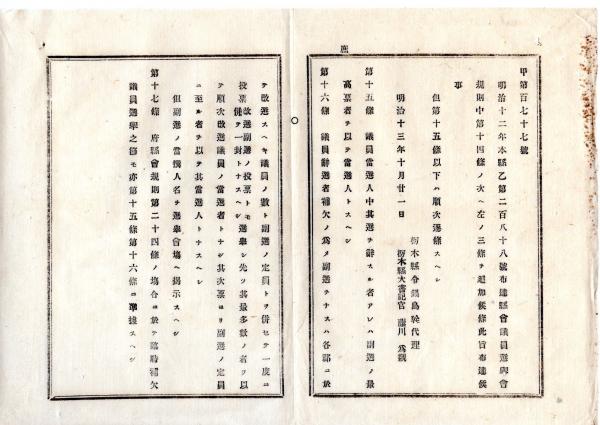 庶
甲第百七十七號
明治十二年本縣乙第二百八十八號布達縣會議員選擧會
規則中第十四條ノ次ヘ左ノ三條ヲ追加候條此旨布達候
事
但第十五條以下ハ順次遞條スヘシ
栃木縣令鍋島幹代理
明治十三年十月廿一日 栃木縣大書記官 藤川爲親
第十五條 議員當選人中其選ヲ辭スル者アレハ副選ノ最
高票者ヲ以テ當選人トスヘシ
第十六條 議員辭選者補欠ノ爲メ副選ヲナスハ各郡ニ於
テ改選スヘキ議員ノ數ト副選ノ定員トヲ併セテ一度ニ
投票 改選副選ノ投票トモ併テ一封トナスヘシ 選擧シ先ツ其最多數ノ者ヲ以
テ順次改選議員ノ當選者トナシ其次票ヨリ副選ノ定員
ニ至ル者ヲ以テ其當選人トナスヘシ
但副選ノ當撰人名ヲ選擧會塲ヘ揭示スヘシ
第十七條 府縣會規則第二十四條ノ塲合ニ於テ臨時補欠
議員選擧之節モ亦第十五條第十六條ニ準據スヘシ